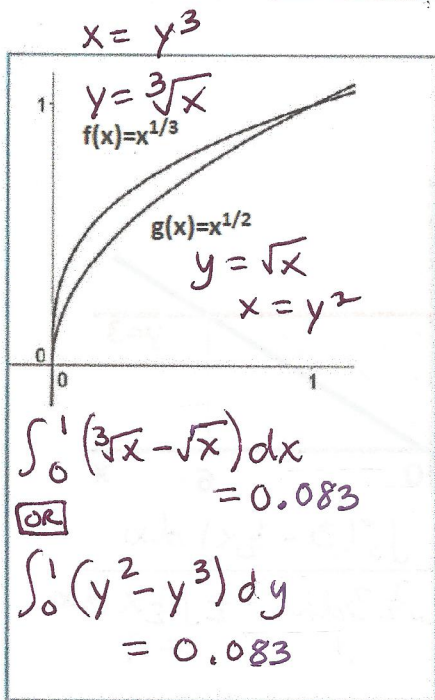 x = y³
1
y = ³√x
f(x)=x^1/3
g(x)=x^1/2
y = √x
x = y²
0
0 1
∫₀¹ (³√x - √x) dx
= 0.083
OR
∫₀¹ (y² - y³) dy
= 0.083